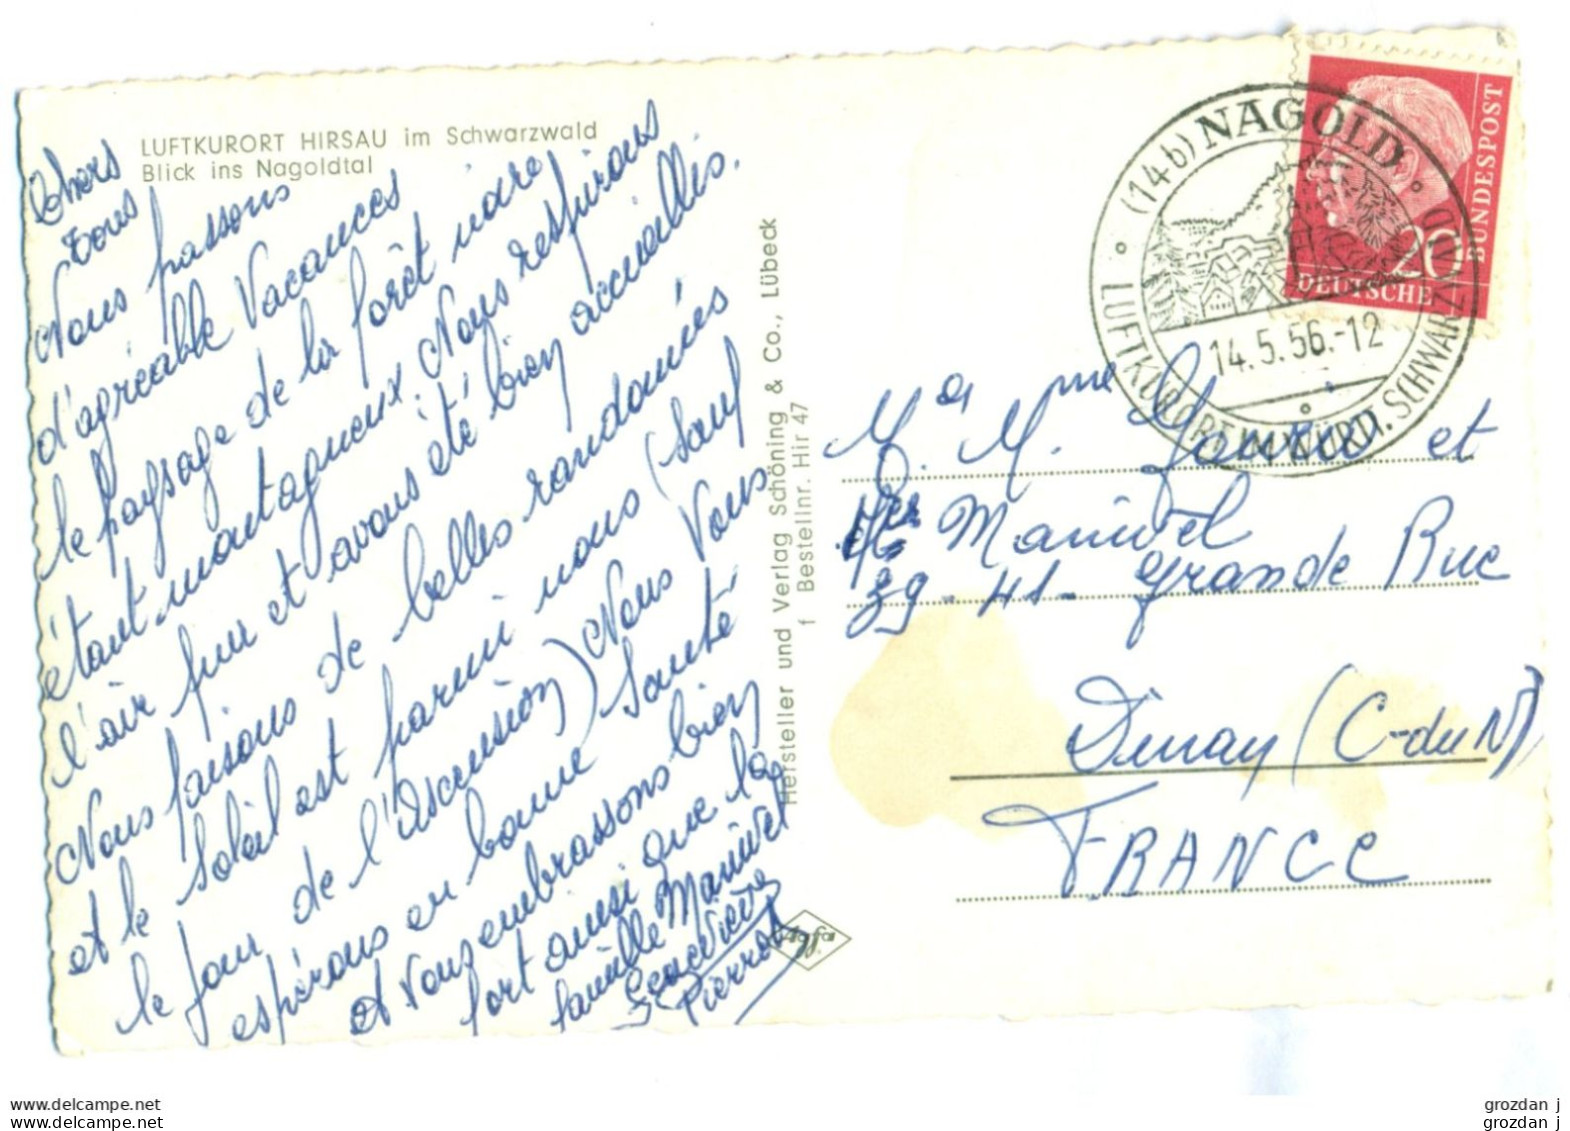 LUFTKURORT HIRSAU im Schwarzwald
Blick ins Nagoldtal
Chers
tous
Nous passons
d'agréable Vacances
le paysage de la forêt noire
étant montagneux. Nous respirons
l'air pur et avons été bien accueillis.
Nous faisons de belles randonnées
et le soleil est parmi nous (sauf
le jour de l'Ascension) Nous Vous
espérons en bonne Santé
et Vous embrassons bien
fort ainsi que la
famille Manivel
Geneviève
Pierrot
Hersteller und Verlag Schöning & Co., Lübeck
f Bestellnr. Hir 47
(14b) NAGOLD
LUFTKURORT I. WÜRTT. SCHWARZWALD
14.5.56.-12
DEUTSCHE
BUNDESPOST
20
M. Mme et
Manivel
39-41- grande Rue
Dinan (C-du N)
FRANCE
grozdan j
grozdan j
www.delcampe.net
www.delcampe.net